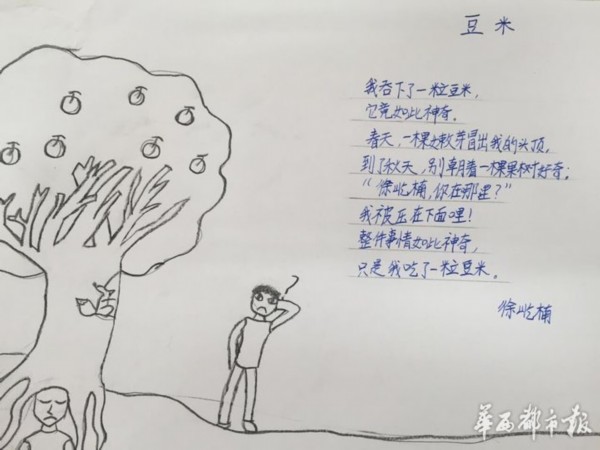 豆米
我吞下了一粒豆米,
它竟如此神奇。
春天,一棵嫩芽冒出我的头顶,
到了秋天,别朝着一棵果树好奇:
“徐屹楠,你在哪里?”
我被压在下面哩!
整件事情如此神奇,
只是我吃了一粒豆米。
徐屹楠
?
华西都市报